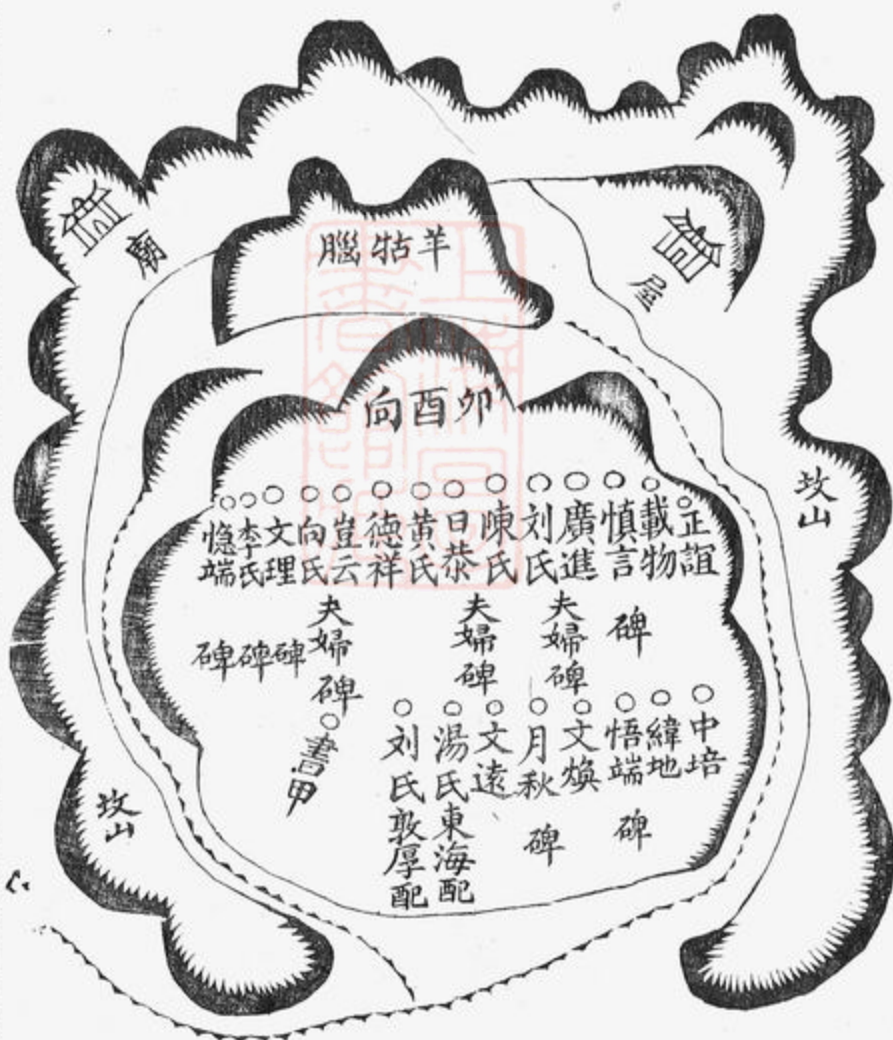 羊牯腦
廟
屋
卯酉向
坟山
正誼
載物
慎言
碑
廣進
刘氏
夫婦碑
陳氏
日恭
夫婦碑
黄氏
德祥
豈云
向氏
夫婦碑
文理
碑
李氏
碑
端
碑
中培
緯地
悟端
碑
文煥
月秋
碑
文遠
湯氏東海配
刘氏敦厚配
書甲
坟山